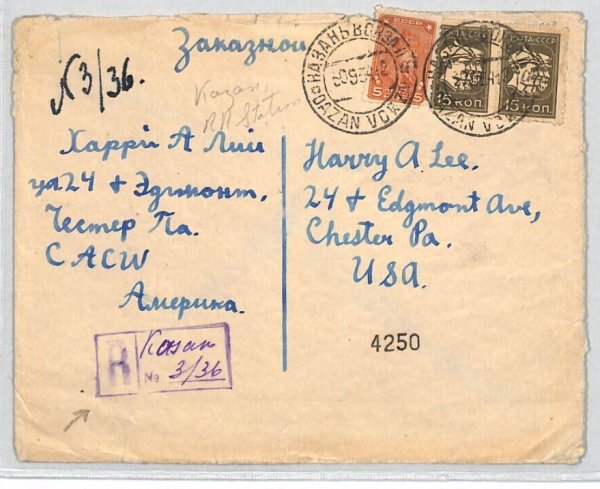 Заказное
N3/36.
Kazan
RR Station
КАЗАНЬ ВОКЗАЛ
QAZAN VOKZAL
СССР
5 5
ПОЧТА СССР
15 КОП.
15 КОП.
Харрй А Лии
ул 24 + Эдгмонт,
Честер Па.
САСШ
Америка.
Harry A Lee.
24 + Edgmont Ave,
Chester Pa.
USA.
4250
R
Kasan
№ 3/36